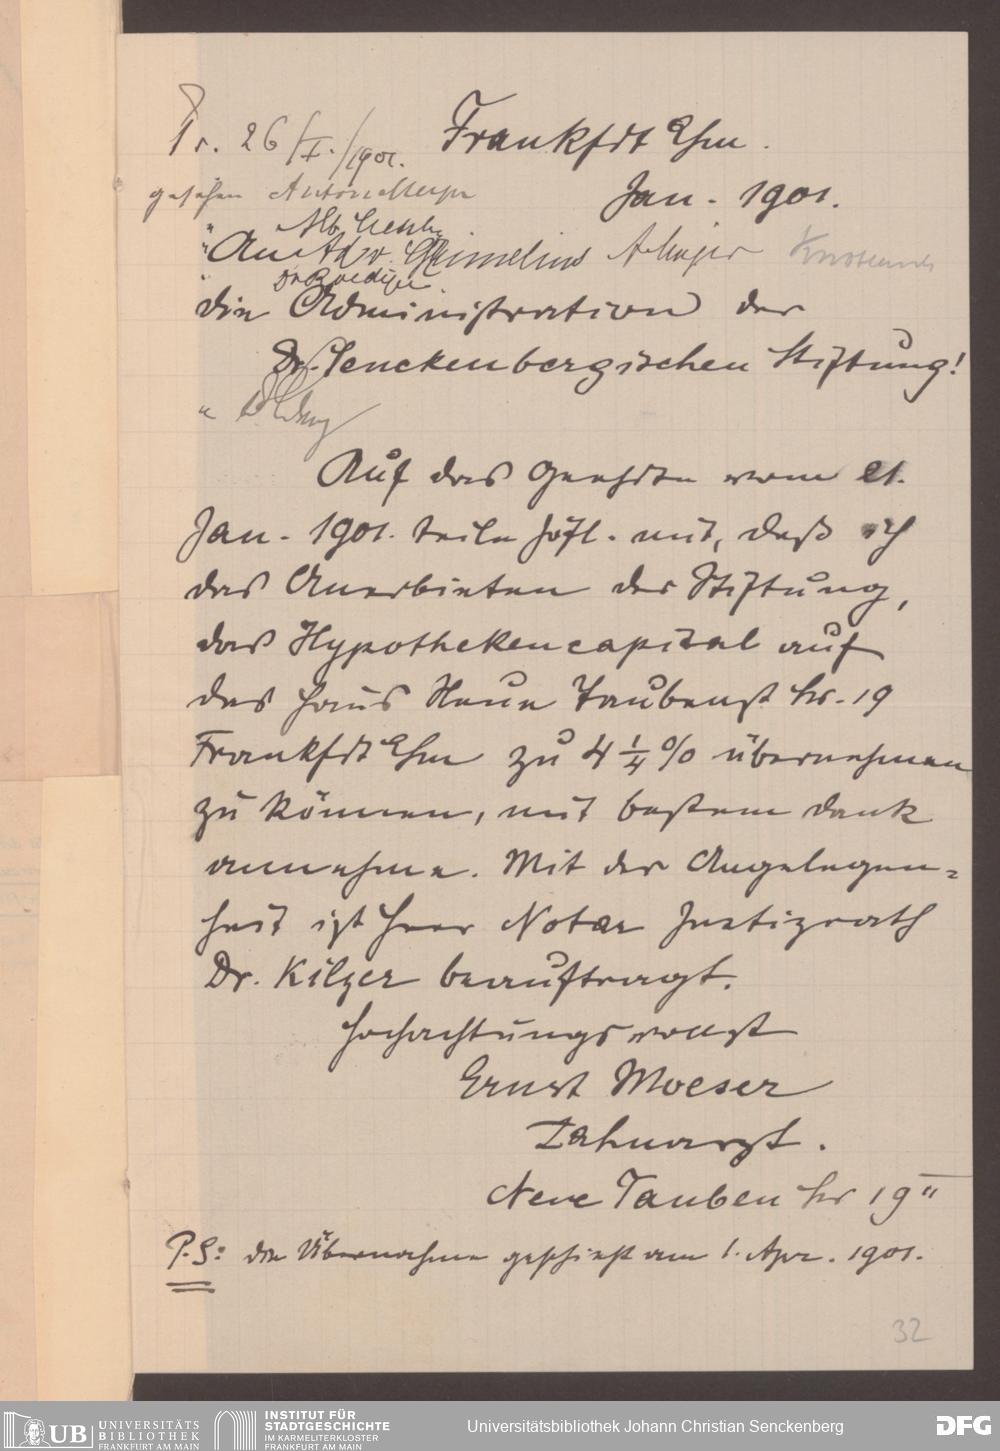 Pr. 26/I./1901. Frankfdt a/m.
gesehen Anton Meyer Jan. 1901.
" Alb.
An Adv. Grimelius A. Meyer
" Dr Roediger
die Administration der
Dr. Senckenbergischen Stiftung!
"
Auf das Geehrte vom 21.
Jan. 1901. teile höfl. mit, daß ich
das Anerbieten der Stiftung,
das Hypothekencapital auf
das Haus Neue Taubengst Nr. 19
Frankfdt a/m zu 4 1/4 % übernehmen
zu können, mit bestem Dank
annehme. Mit der Angelegen=
heit ist Herr Notar Justizrath
Dr. Kilzer beauftragt.
Hochachtungsvollst
Ernst Moeser
Zahnarzt.
Neue Tauben Nr 19 II
P.S: die Übernahme geschieht am 1. Apr. 1901.
32
UB UNIVERSITÄTS
BIBLIOTHEK
FRANKFURT AM MAIN
INSTITUT FÜR
STADTGESCHICHTE
IM KARMELITERKLOSTER
FRANKFURT AM MAIN
Universitätsbibliothek Johann Christian Senckenberg
DFG